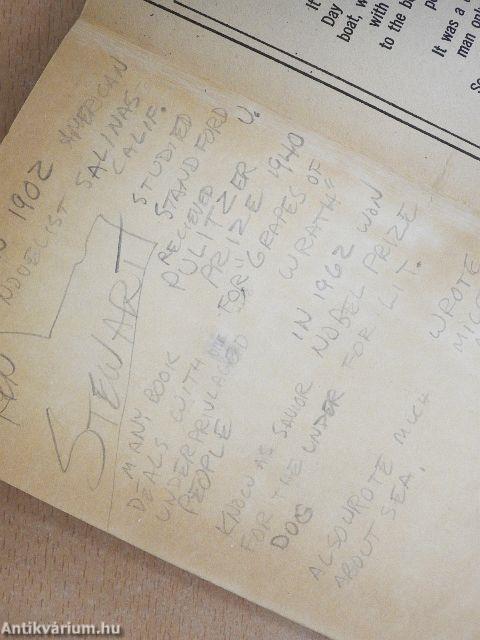 1902 AMERICAN
NOVELIST SALINAS
CALIF.
STUDIED
STANDFORD
U.
RECIEVED
PULITZER
PRIZE 1940
FOR "GRAPES OF
WRATH"
IN 1962 WON
NOBEL PRIZE
FOR LIT.
STEWART
MANY BOOK
DEALS WITH
UNDERPRIVLAGED
PEOPLE
KNOW AS SAVIOR
FOR THE UNDER
DOG
ALSO WROTE MUCH
ABOUT SEA.
WROTE
It
Day
boat, w
with
to the b
It was a
man onl
Antikvárium.hu